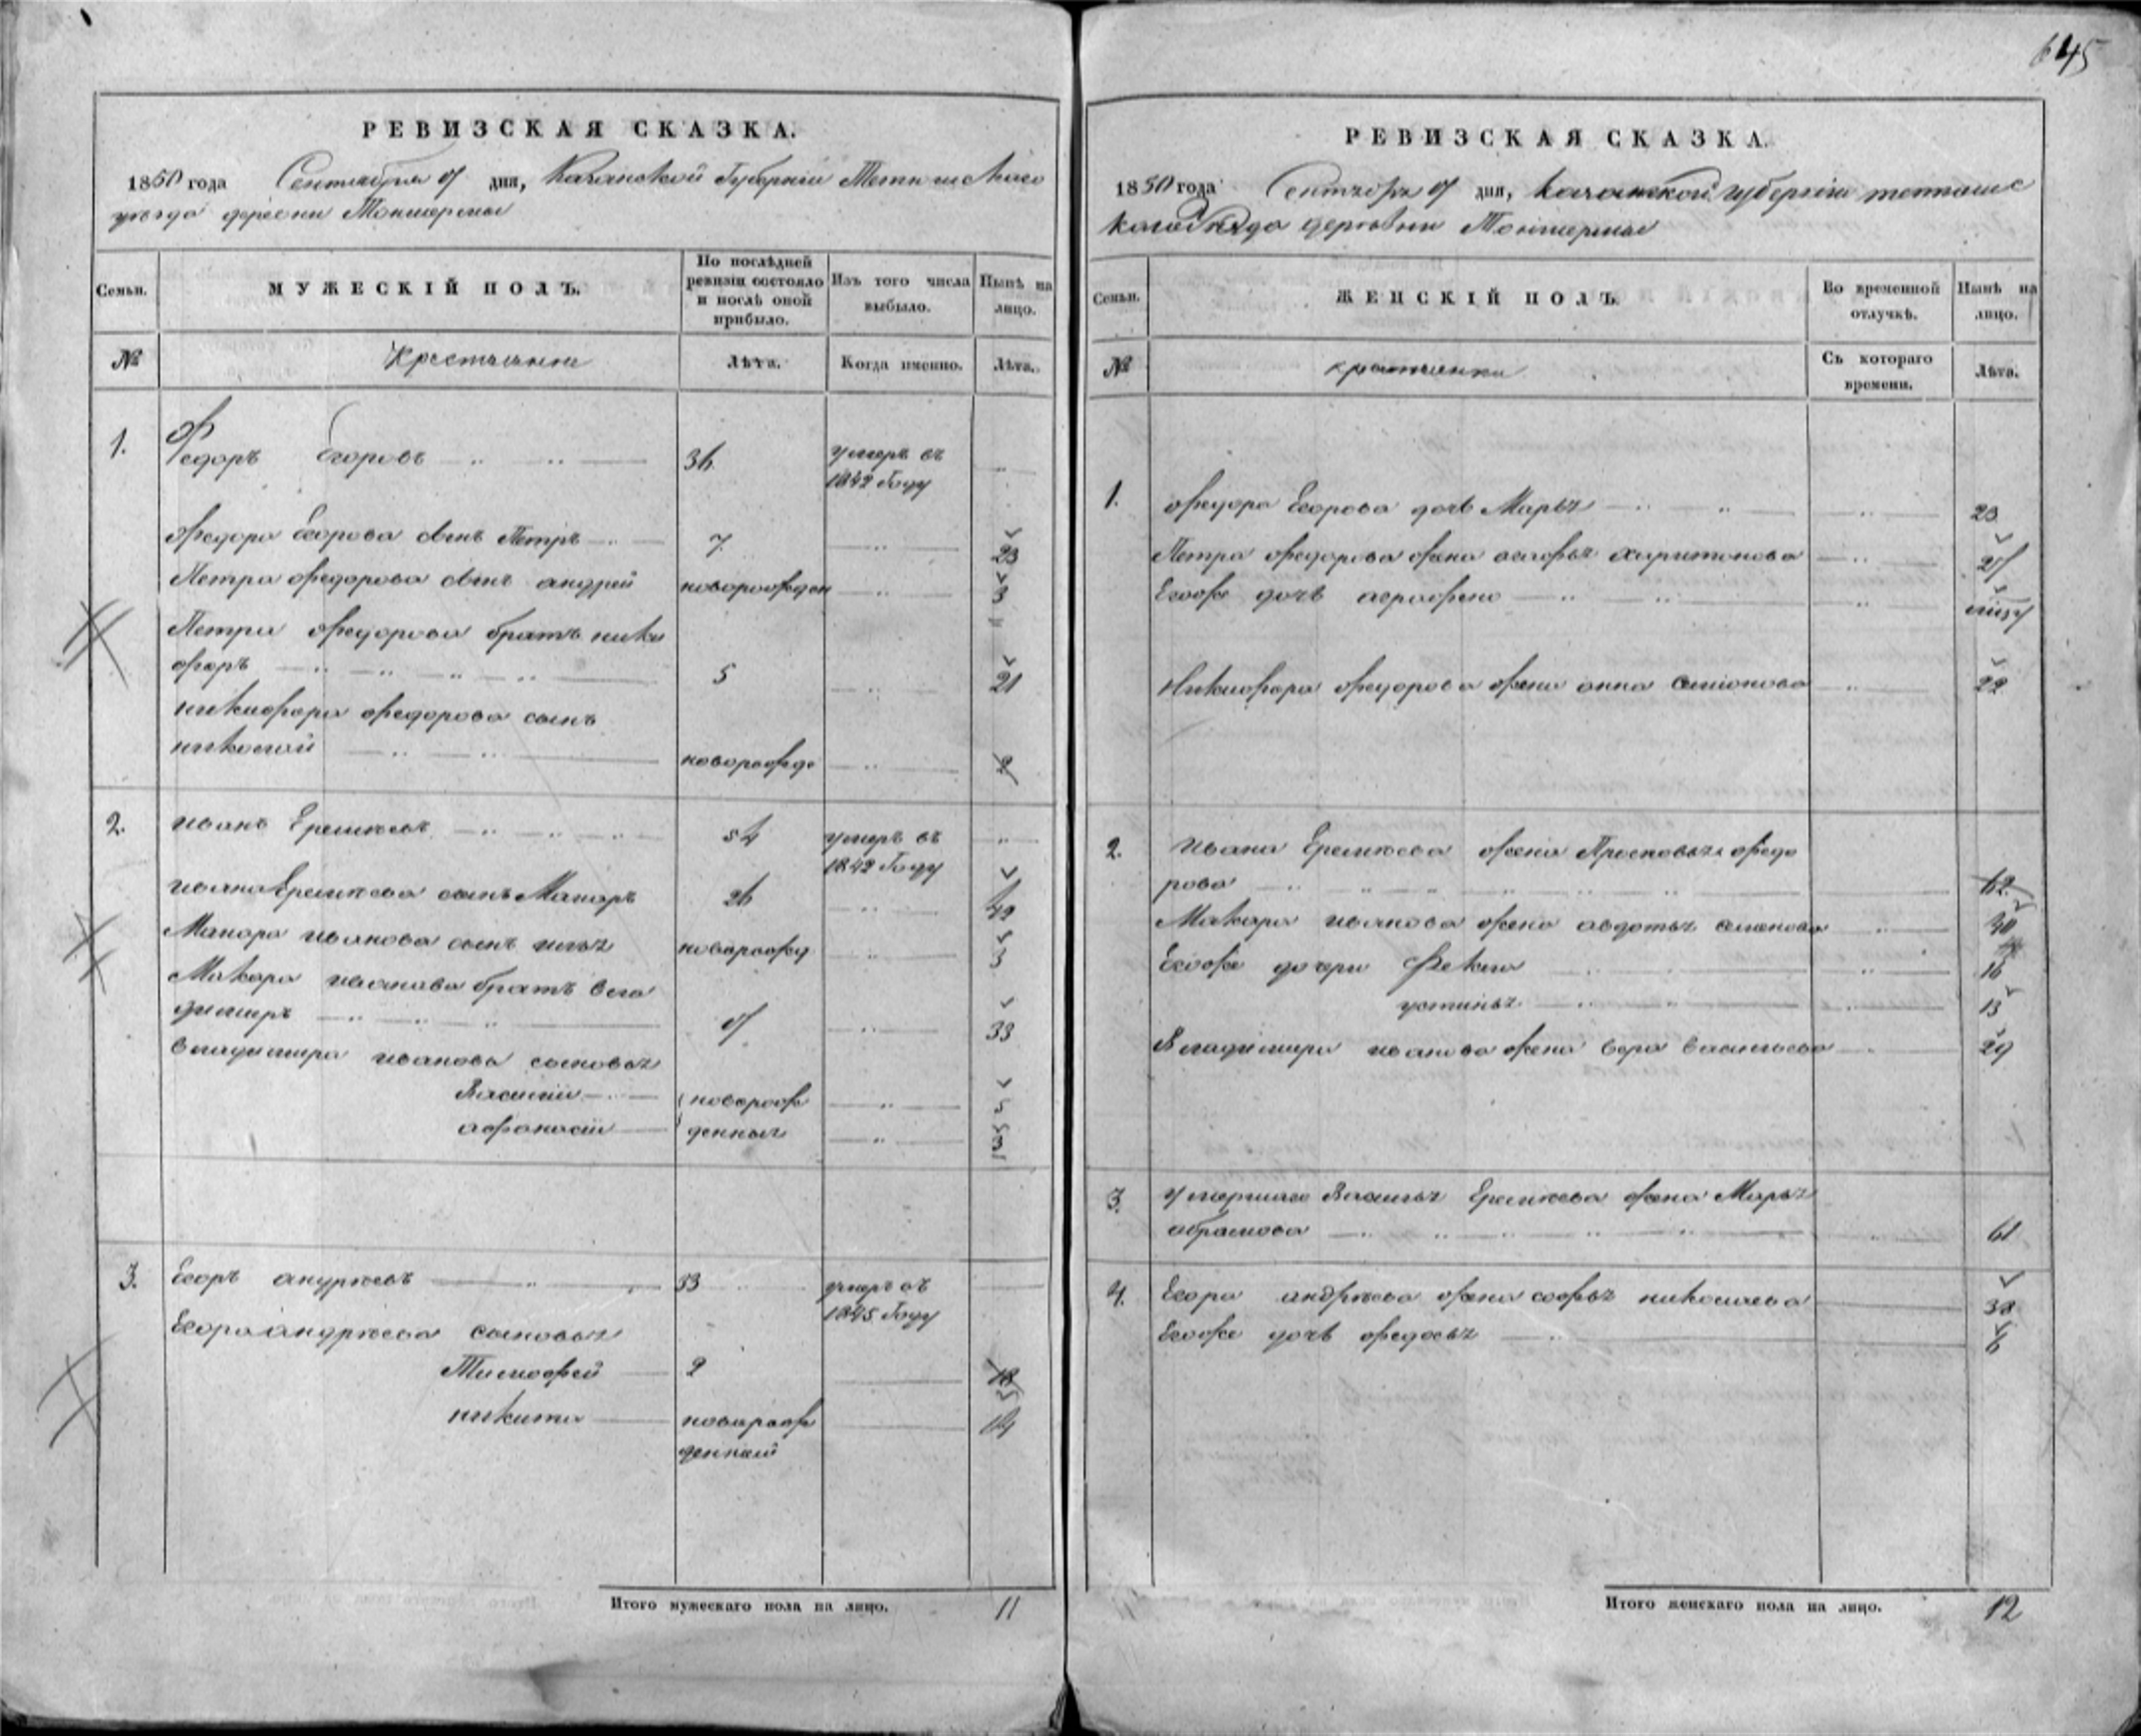 645
РЕВИЗСКАЯ СКАЗКА.
1850 года Сентября дня, Казанской Губернии Тетюшскаго
уезда деревни
Семьи.
МУЖЕСКІЙ ПОЛЪ.
По послѣдней ревизіи состояло и послѣ оной прибыло.
Изъ того числа выбыло.
Нынѣ на лицо.
№
Крестьяне
Лѣта.
Когда именно.
Лѣта.
1.
Федоръ Егоровъ 36 умеръ въ
1842 Году
Федора Егорова сынъ Петръ 7 23
Петра Федорова сынъ андрей новорожден 3
Петра Федорова братъ ники
форъ 5 21
никифора федорова сынъ
николай новорожде
2. иванъ Еремѣевъ 54 умеръ въ
1842 Году
ивана Еремѣева сынъ Макаръ
Макара иванова сынъ илья новорожд 3
Макара иванова братъ вла
димиръ 33
владимира иванова сыновья
Василий новорож 5
афанасій денныя 3
3. Егоръ андреевъ 33 умеръ въ
1845 Году
Егора андрѣева сыновья
Тимофей 2 18
никита новорож 14
денный
Итого мужескаго пола на лицо. 11
РЕВИЗСКАЯ СКАЗКА.
1850 года Сентября дня, казанской губерніи тетюшс
каго уезда деревни
Семьи.
ЖЕНСКІЙ ПОЛЪ.
Во временной отлучкѣ.
Нынѣ на лицо.
№
крестьянки
Съ котораго времени.
Лѣта.
1. Федора Егорова дочь Марья 23
Петра Федорова жена харитонова
Егоже дочь аграфена
Никифора федорова жена анна 22
2. Ивана Еремѣева жена Прасковья федо
рова 62
Макара иванова жена авдотья семенова 40
Егоже дочери Фекла 16
устинья 13
Владимира иванова жена вера васильева 29
3. умершаго Василья Еремѣева жена Марья
абрамова 61
4. Егора андрѣева жена софья николаева 38
Егоже дочь федосья 6
Итого женскаго пола на лицо. 12